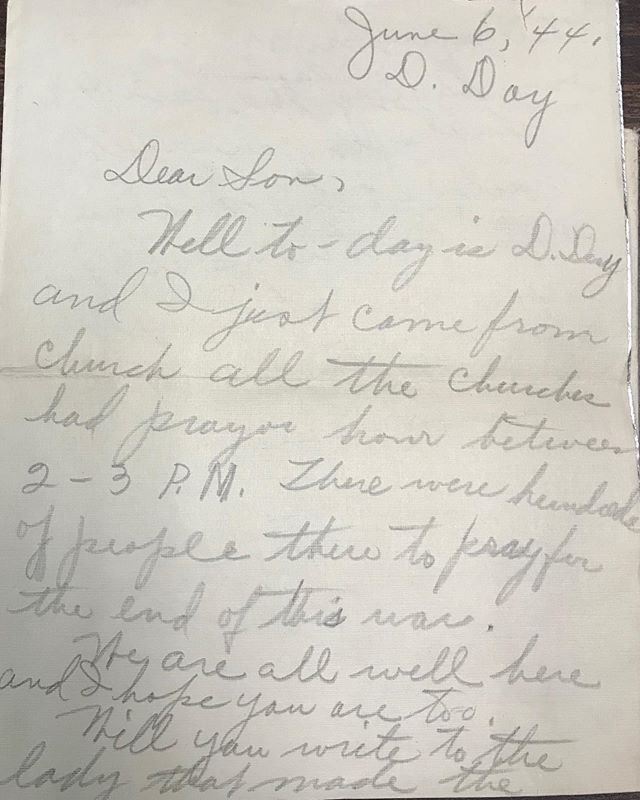 June 6, '44.
D. Day
Dear Son,
Well to-day is D. Day
and I just came from
church all the churches
had prayor hour between
2-3 P.M. There were hundreds
of people there to pray for
the end of this war.
We are all well here
and I hope you are too.
Will you write to the
lady that made the